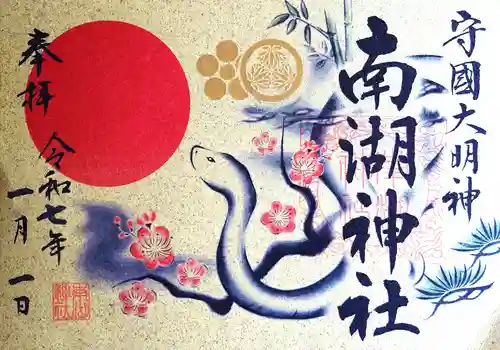 守國大明神
南湖神社
奉拝
令和七年
一月一日